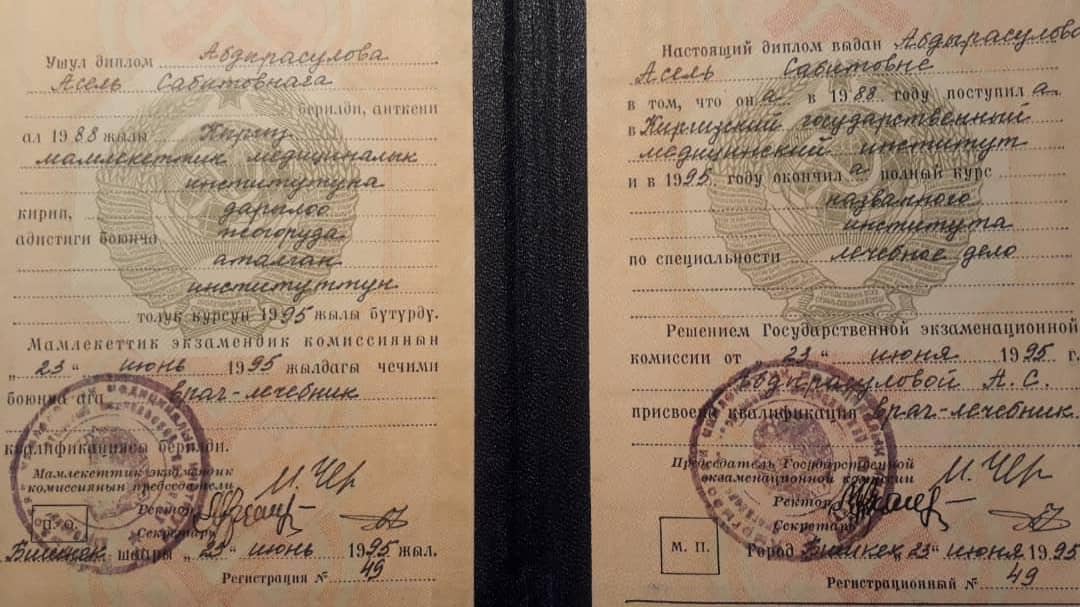 Ушул диплом Абдырасулова
Асель Сабитовнага
берилди, анткени
ал 1988 жылы Кыргыз
мамлекеттик медициналык
институтуна
кирип, дарылоо
адистиги боюнча жогоруда
аталган
институттун
толук курсун 1995 жылы бүтүрдү.
Мамлекеттик экзамендик комиссиянын
„23“ июнь 1995 жылдагы чечими
боюнча ага врач-лечебник
квалификациясы берилди.
Мамлекеттик экзамендик
комиссиянын председатели
Ректор
Секретарь
П. О.
Бишкек шаары „23“ июнь 1995 жыл.
Регистрация № 49
Настоящий диплом выдан Абдырасулова
Асель Сабитовне
в том, что она в 1988 году поступила
в Киргизский государственный
медицинский институт
и в 1995 году окончила полный курс
названного
института
по специальности лечебное дело
Решением Государственной экзаменационной
комиссии от „23“ июня 1995 г.
Абдырасуловой А. С.
присвоена квалификация врач-лечебник.
Председатель Государственной
экзаменационной комиссии
Ректор
Секретарь
М. П.
Город Бишкек „23“ июня 1995
Регистрационный № 49